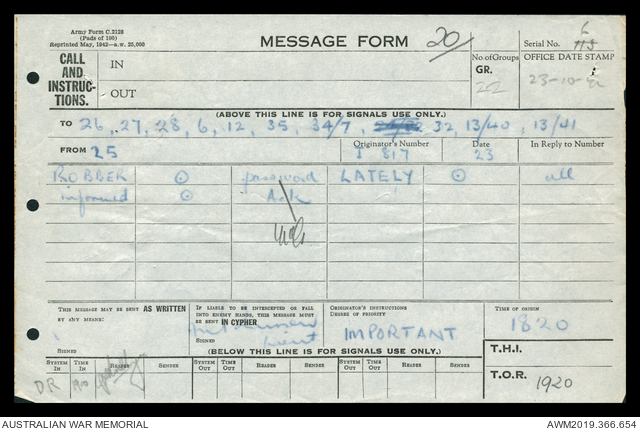 Army Form C.2128
(Pads of 100)
Reprinted May, 1942—a.w. 25,000
MESSAGE FORM 20
Serial No.
CALL AND INSTRUCTIONS.
IN
OUT
No. of Groups
GR.
22
OFFICE DATE STAMP
23-10-42
(ABOVE THIS LINE IS FOR SIGNALS USE ONLY.)
TO 26, 27, 28, 6, 12, 35, 34/7, 32, 13/40, 13/41
FROM 25
Originator's Number
I 817
Date
23
In Reply to Number
ROBBER ⊙ password LATELY ⊙ all
informed ⊙ Ack
THIS MESSAGE MAY BE SENT AS WRITTEN
BY ANY MEANS:
SIGNED
IF LIABLE TO BE INTERCEPTED OR FALL
INTO ENEMY HANDS, THIS MESSAGE MUST
BE SENT IN CYPHER
SIGNED
ORIGINATOR'S INSTRUCTIONS
DEGREE OF PRIORITY
IMPORTANT
TIME OF ORIGIN
1820
(BELOW THIS LINE IS FOR SIGNALS USE ONLY.)
T.H.I.
SYSTEM IN TIME IN READER SENDER SYSTEM OUT TIME OUT READER SENDER SYSTEM OUT TIME OUT READER SENDER
DR
T.O.R. 1920
AUSTRALIAN WAR MEMORIAL
AWM2019.366.654